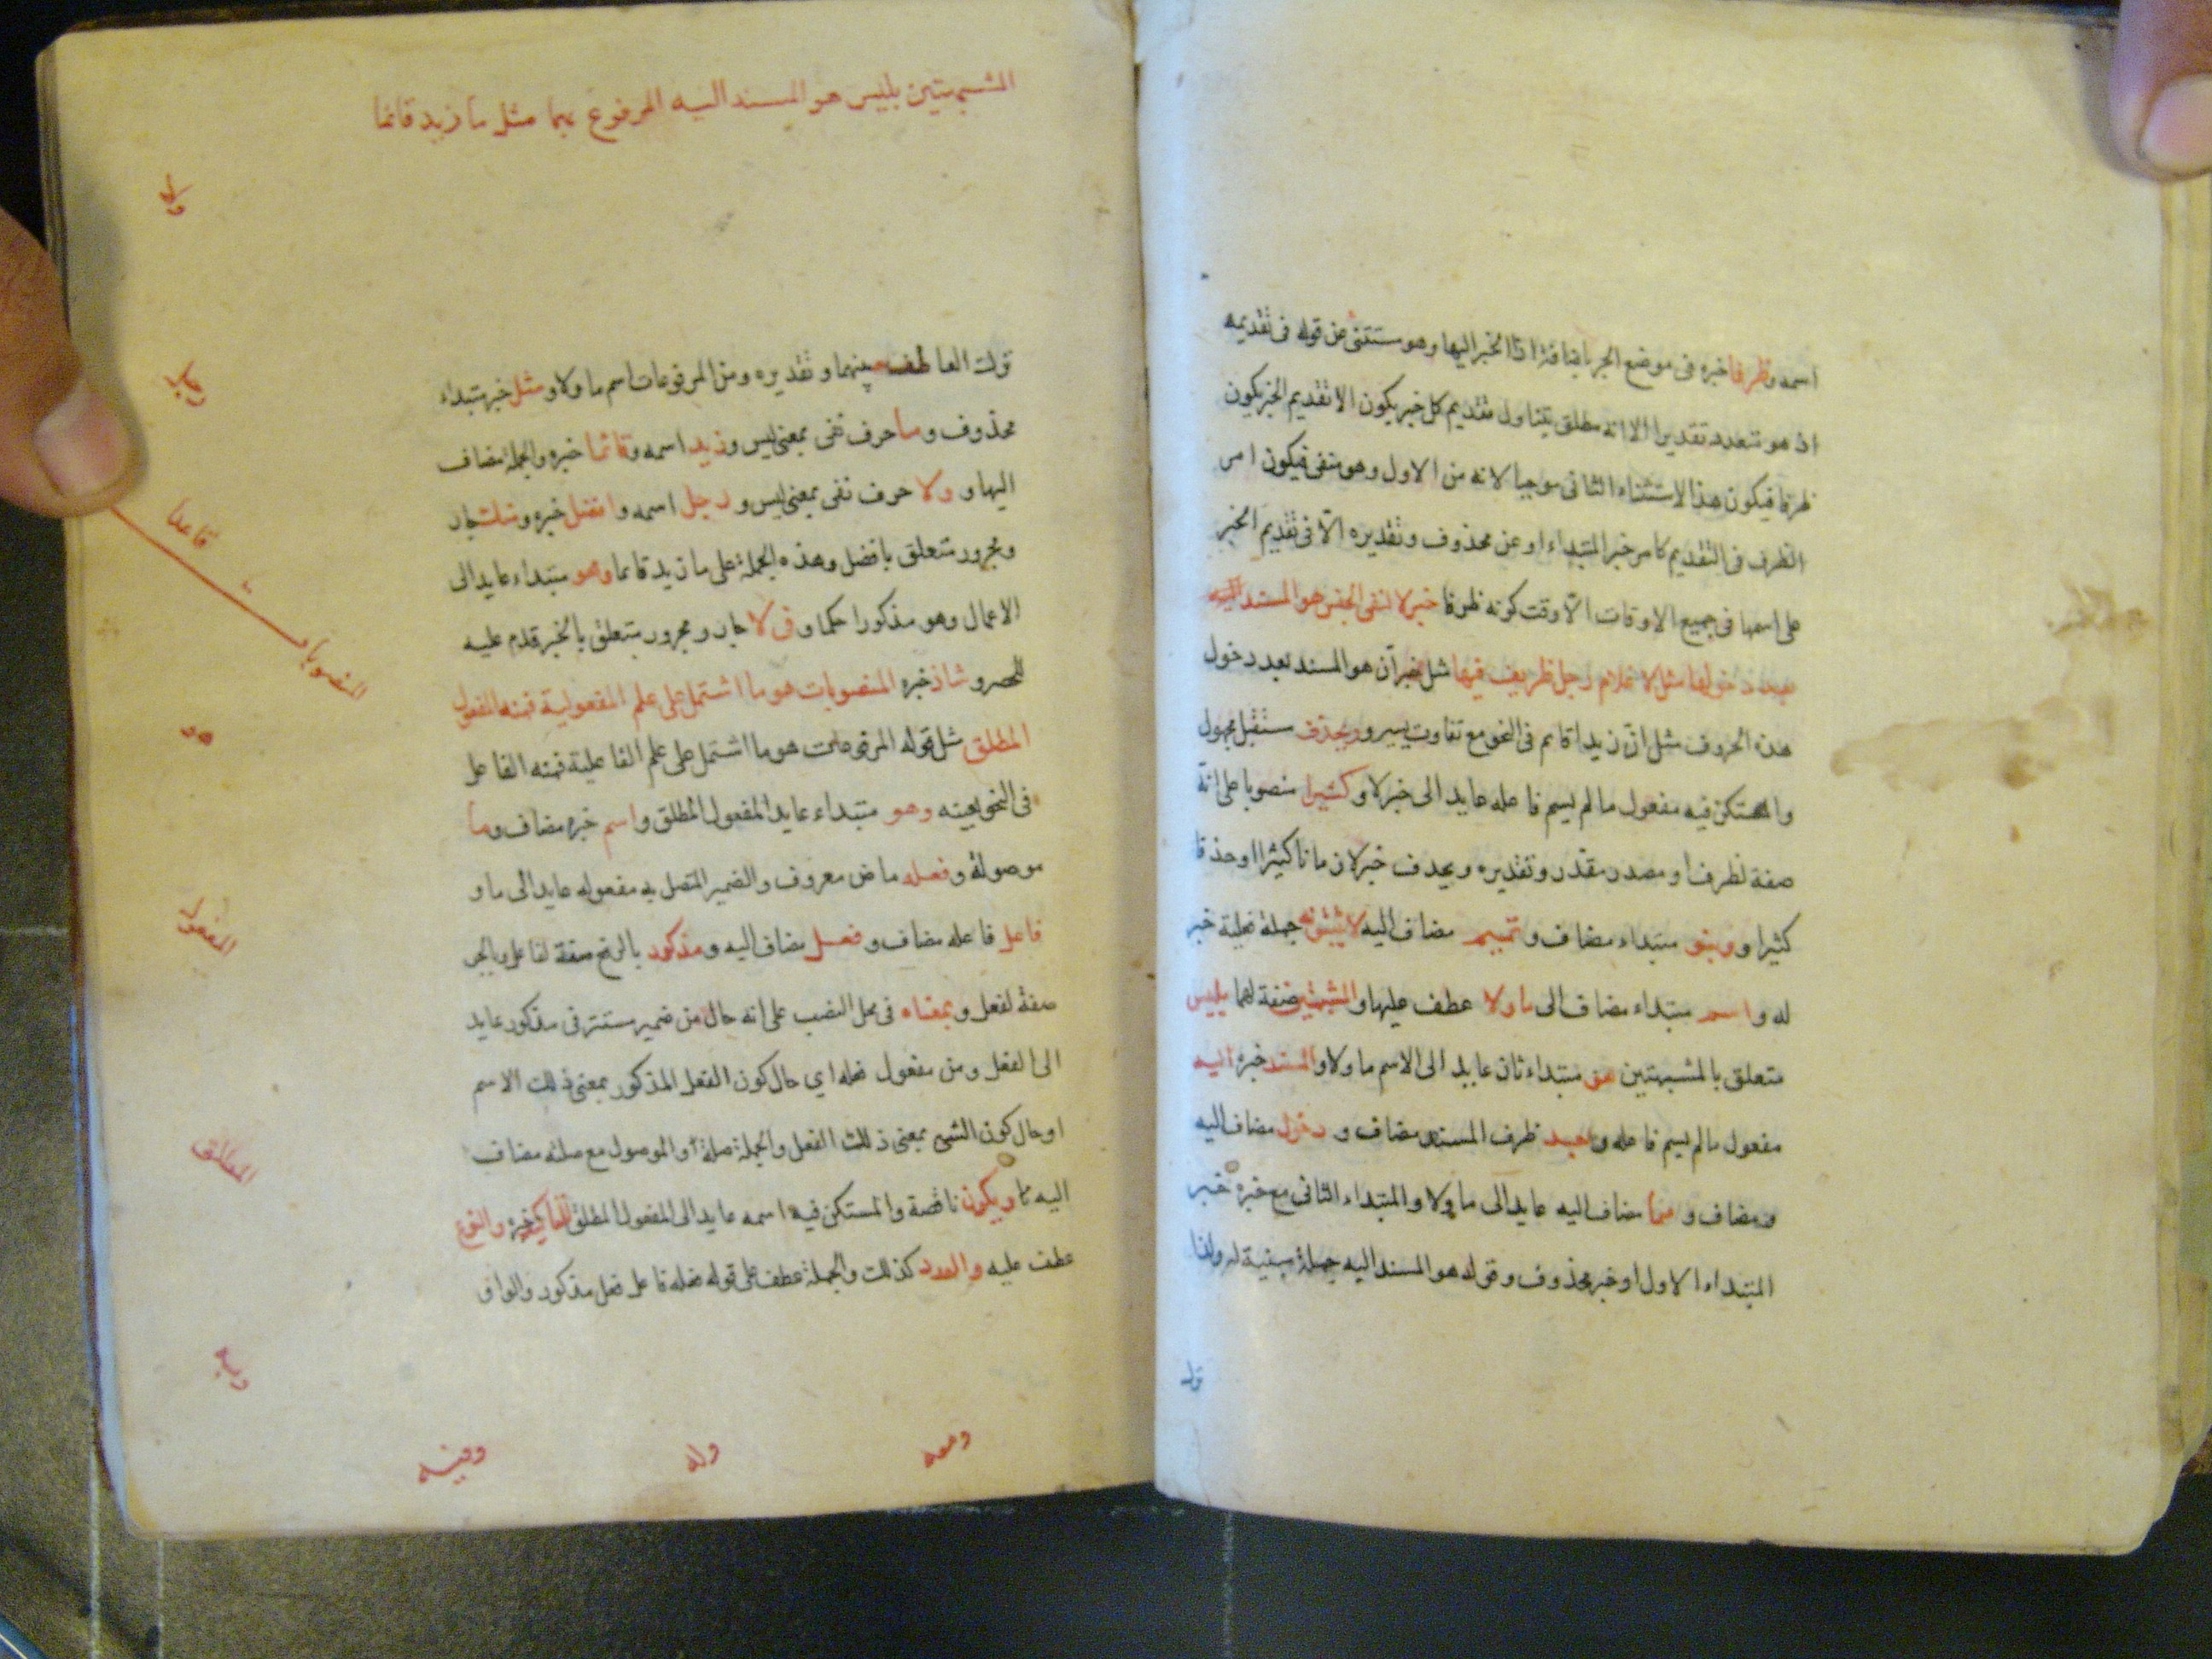 اسمه وظرفا خبره فى موضع الجر باضافة اذا الخبر اليها وهو مستثنى عن قوله فى تقديمه
اذ هو متعدد تقديرا الا انه مطلق يتناول تقديم كل خبر يكون الا تقديم الخبر يكون
ظرفا فيكون هذا الاستثناء الثانى موجبا لانه من الاول وهو منفى فيكون امر
الظرف فى التقديم كامر خبر المبتداء او عن محذوف وتقديره الا فى تقديم الخبر
على اسمها فى جميع الاوقات الا وقت كونه ظرفا خبر لا لنفى الجنس هو المسند اليه
بعد دخولها مثل لا غلام رجل ظريف فيها مثل خبر ان هو المسند بعد دخول
هذه الحروف مثل ان زيدا قايم فى النحو مع تفاوت يسير و ويحذف مستقبل مجهول
والمستكن فيه مفعول مالم يسم فاعله عايد الى خبر لا و كثيرا منصوبا على انه
صفة لظرف او مصدر مقدر وتقديره ويحدف خبر لا زمانا كثيرا او حذفا
كثيرا و وبنو مبتداء مضاف و تميم مضاف اليه لا يثبتونه جملة فعلية خبر
له و اسم مبتداء مضاف الى ما ولا عطف عليها و المشبهتين صفة لهما بليس
متعلق بالمشبهتين هو مبتداء ثان عايد الى الاسم ما ولا و المسند خبره اليه
مفعول مالم يسم فاعله و بعد ظرف المسند مضاف و دخول مضاف اليه
ومضاف و هما مضاف اليه عايد الى ما ولا والمبتداء الثانى مع خبره خبر
المبتداء الاول او خبر محذوف وقوله هو المسند اليه جملة مبنية له ولذا
المشبهتين بليس هو المسند اليه المرفوع بهما مثل ما زيد قائما
ترك العاطف بينهما وتقديره ومن المرفوعات اسم ما ولا و مثل خبر مبتداء
محذوف و ما حرف نفى بمعنى ليس و زيد اسمه و قائما خبره والجملة مضاف
اليها و ولا حرف نفى بمعنى ليس و رجل اسمه و افضل خبره و منك جار
ومجرور متعلق بافضل وهذه الجملة على ما زيد قاعا وهو مبتداء عايد الى
الاعمال وهو مذكورا حكما و فى لا جار ومجرور متعلق بالخبر قدم عليه
للحصر و شاذ خبره المنصوبات هو ما اشتمل على علم المفعولية فمنه المفعول
المطلق مثل قوله المرفوعات هو ما اشتمل على علم الفاعلية فمنه الفاعل
فى النحو بعينه وهو مبتداء عايد المفعول المطلق و اسم خبره مضاف و ما
موصولة و فعله ماض معروف والضمير المتصل به مفعوله عايد الى ما و
فاعل فاعله مضاف و فعل مضاف اليه و مذكور بالرفع صفة لفاعل وبالجر
صفة لفعل و بمعناه فى محل النصب على انه حال من ضمير مستتر فى مذكور عايد
الى الفعل ومن مفعول فعله اي حال كون الفعل المذكور بمعنى ذلك الاسم
او حال كون الشئ بمعنى ذلك الفعل والجملة صلة او الموصول مع صلته مضاف
اليه و ويكون ناقصة والمستكن فيه اسمه عايد الى المفعول المطلق للتاكيد خبره والنوع
عطف عليه والعدد كذلك والجملة عطف على قوله فعله فاعل فعل مذكور والواو
المنصوبات
المفعول
المطلق